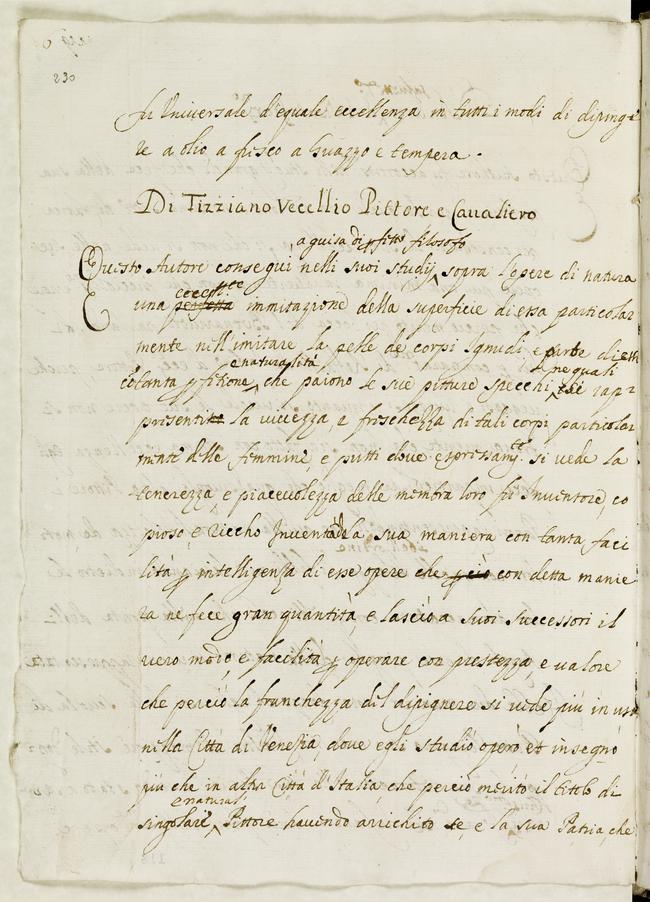 230
fù Universale d'equale eccellenza in tutti i modi di dipinge-
re a olio a fresco a Guazzo e tempera.
Di Tizziano Vecellio Pittore e Cavaliero
a guisa di pfetto filosofo
Questo Autore conseguì nelli suoi studij, sopra l'opere di natura
eccell.te
una perfetta immitazione della superficie di essa particolar
mente nell'imitare la pelle de corpi Ignudi, e parte di essi
e naturalità ne quali
con tanta pfezione, che paiono le sue pitture specchi, che rap-
presentino la vivezza, e freschezza di tali corpi, particolar
mente delle femmine, e putti dove espressam.te si vede la
tenerezza, e piacevolezza delle membra loro fù Inventore, co
pioso, e Riccho Inventò la sua maniera con tanta faci
lità p intelligenza di esse opere che p ciò con detta manie
ra ne fece gran quantità, e lasciò a suoi successori il
vero modo, e facilità p operare con prestezza, e valore
che perciò la franchezza del dipignere si vede più in uso
nella Città di Venezia, dove egli studiò operò et insegnò
più che in altra Città d'Italia che perciò meritò il titolo di
e natural
singolare, Pittore havendo arricchito se, e la sua Patria, che